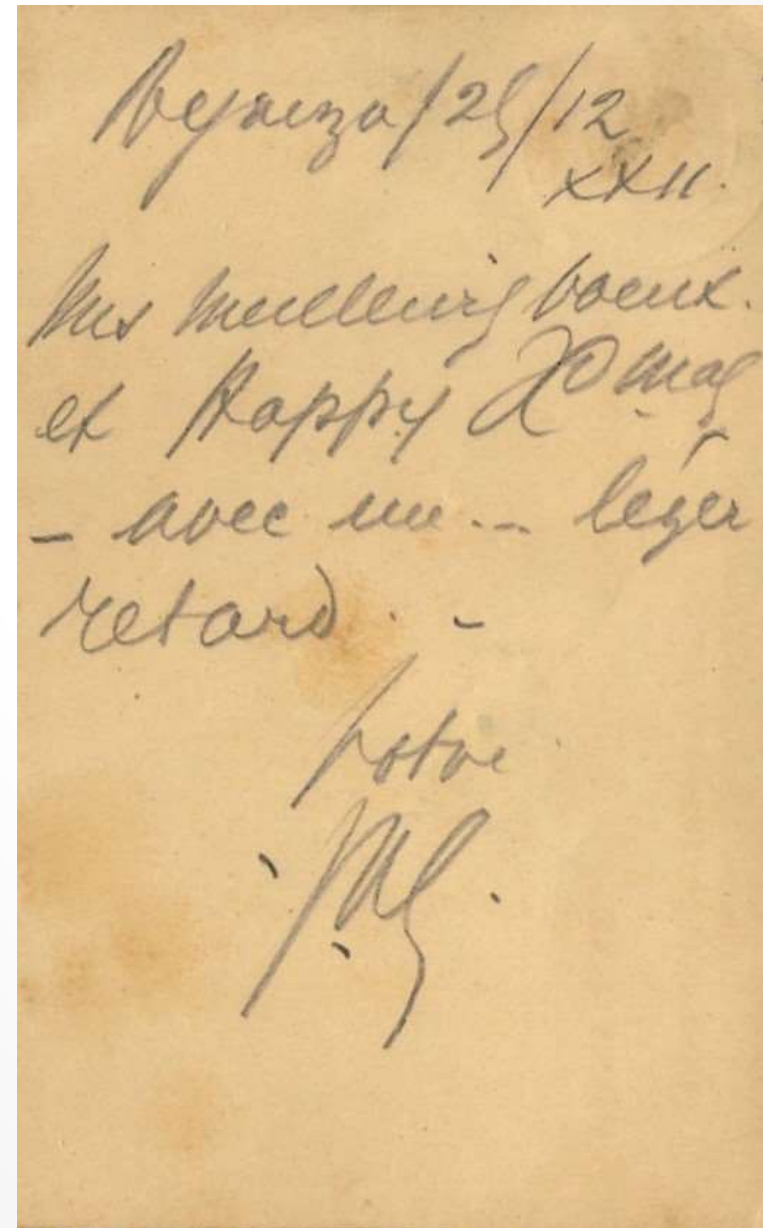 Nyanza / 25/12
XXII.
Mes meilleurs voeux.
et Happy Xmas
- avec un... léger
retard. -
Votre